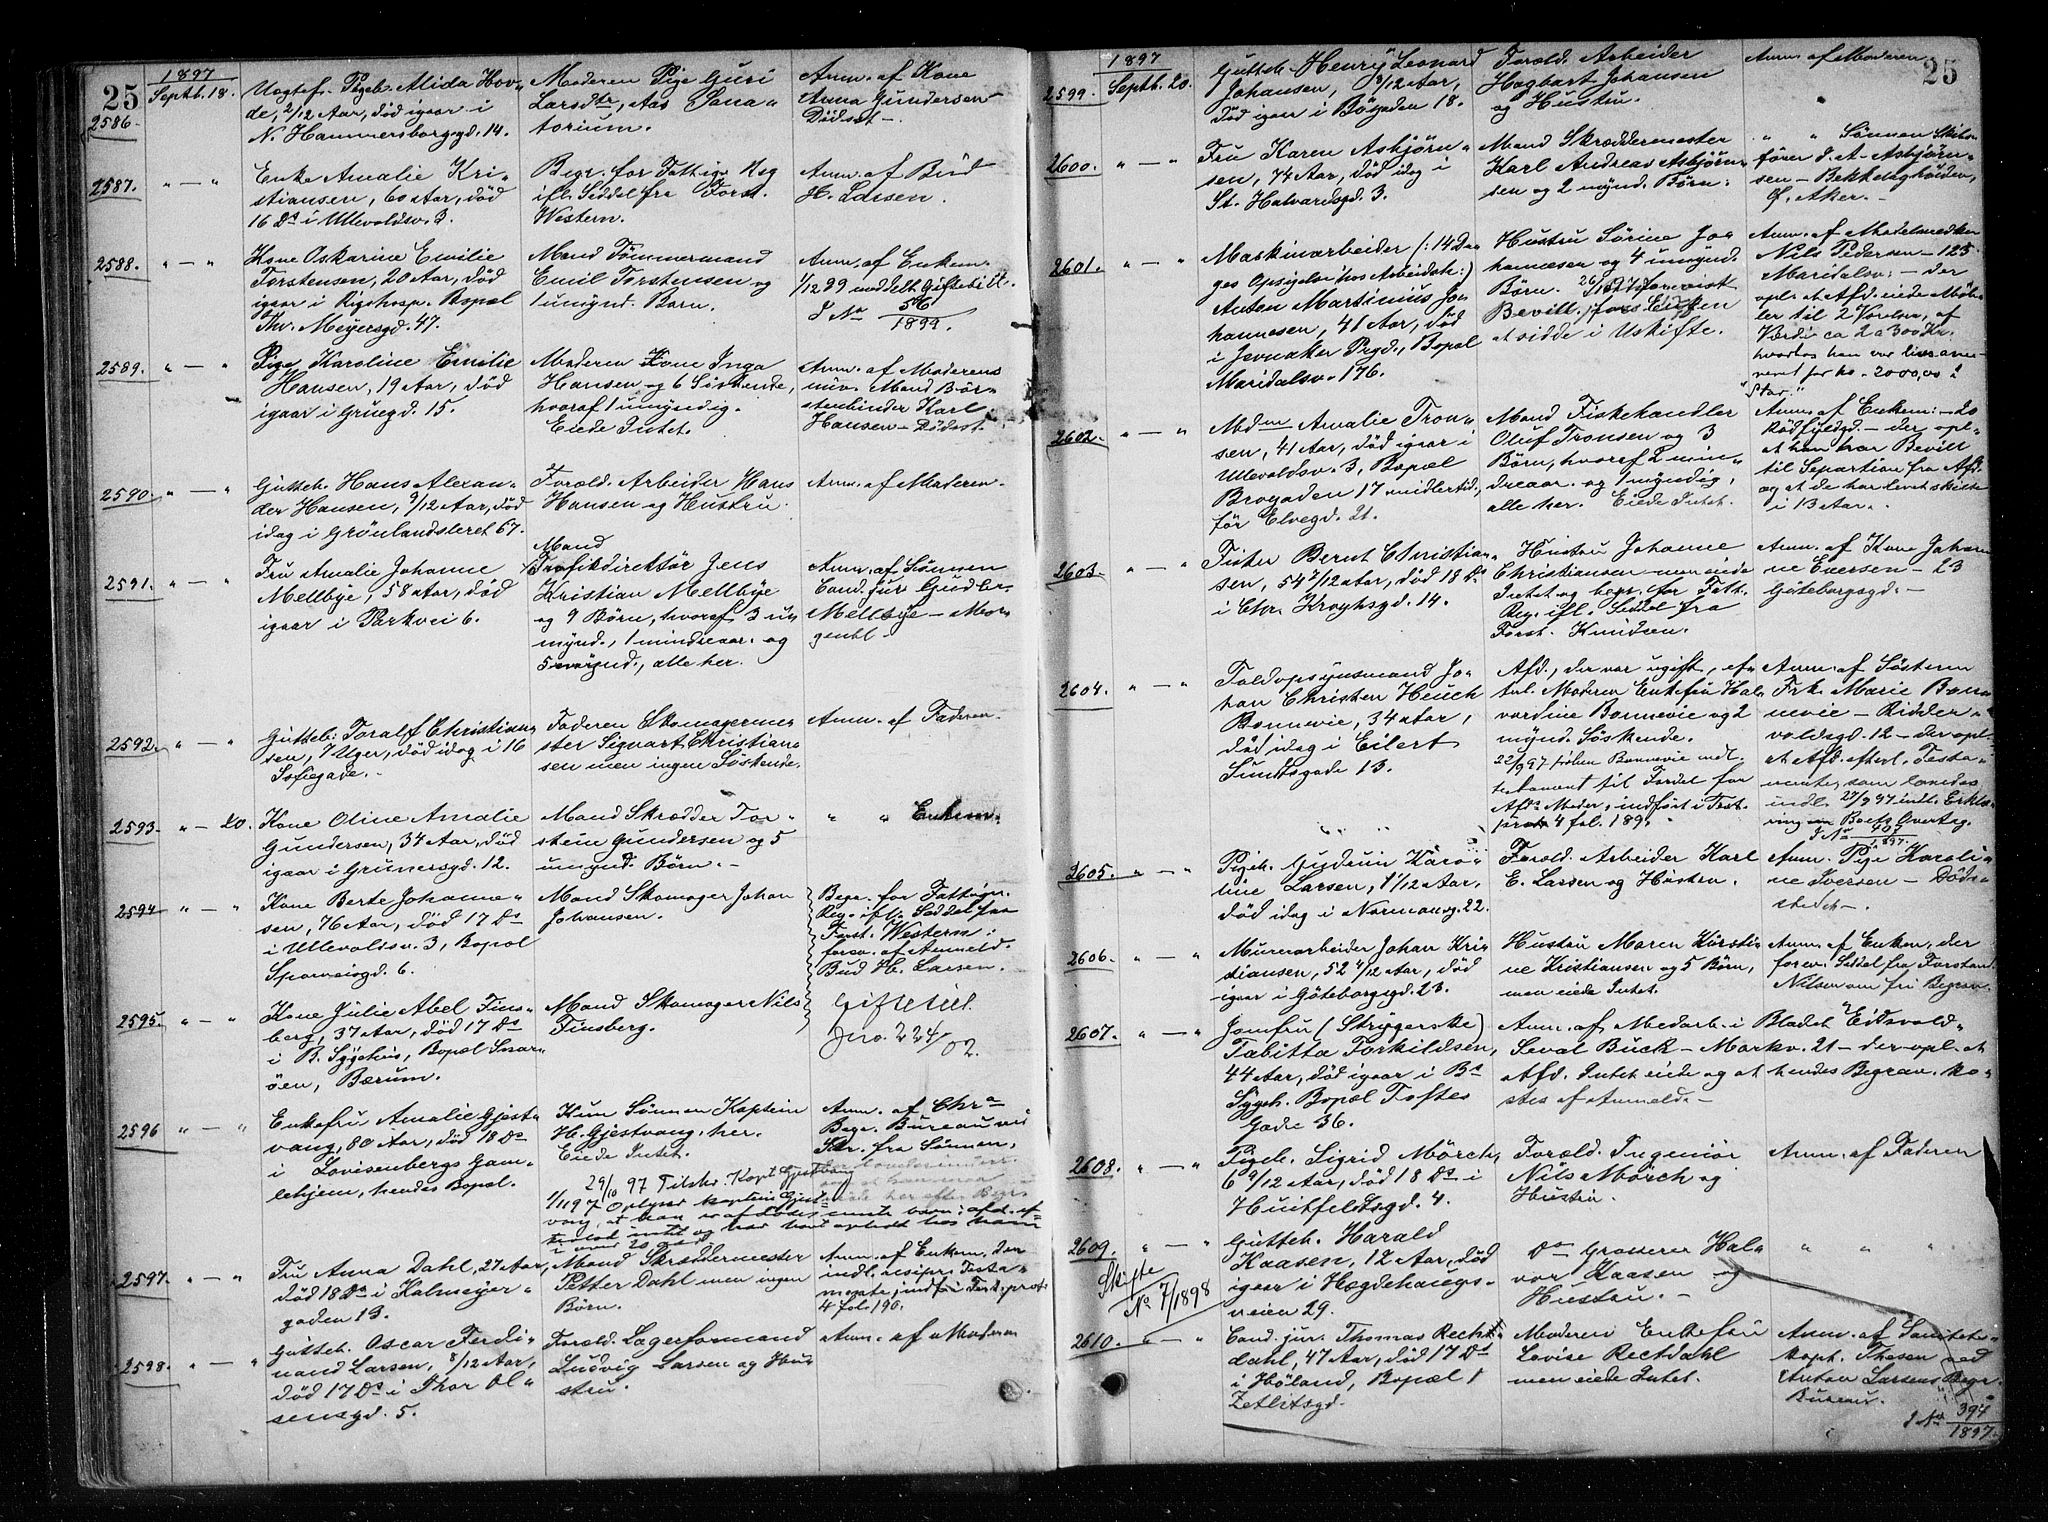 25
1897
2586.
Septb. 18.
Uægtef. Pigeb. Alida Hov-
de, 2/12 Aar, død igaar i
N. Hammersborggd. 14.
Moderen Pige Guri
Larsdtr, Aas Sana-
torium.
Anm. af Kone
Anna Gundersen
Dødsst.-
2587.
" — "
Enke Amalie Kri-
stiansen, 60 Aar, død
16 Ds i Ullevoldsv. 3.
Begr. for Fattigv. Reg
ifl. Seddel fra Forst.
Western.
Anm. af Bud
H. Larsen.
2588.
" — "
Kone Oskarine Emilie
Torstensen, 20 Aar, død
igaar i Rigshosp. Bopæl
Thv. Meyersgd. 47.
Mand Tømmermand
Emil Torstensen og
1 umynd. Barn.
Anm. af Enkem.
1/12 99 meddelt Giftetill.
J No 56/1899.
2589.
" — "
Pige Karoline Emilie
Hansen, 19 Aar, død
igaar i Grüegd. 15.
Moderen Kone Inga
Hansen og 6 Siskende,
hvoraf 1 umyndig.
Eiede Intet.
Anm. af Moderens
nuv. Mand Bør-
stenbinder Karl
Hansen - Dødsst.
2590.
" — "
Gutteb. Hans Alexan-
der Hansen, 9/12 Aar, død
idag i Grønlandsleret 67.
Foræld. Arbeider Hans
Hansen og Hustru.
Anm. af Moderen.
2591.
" — "
Fru Amalie Johanne
Mellbye, 58 Aar, død
igaar i Parkvei 6.
Mand
Trafikdirektør Jens
Kristian Mellbye
og 9 Børn, hvoraf 3 u-
mynd., 1 mindreaar. og
5 mynd., alle her.
Anm. af Sønnen
Cand. jur. Gudbr.
Mellbye - Mor-
genbl.
2592.
" — "
Gutteb. Toralf Christian-
sen, 7 Uger, død idag i 16
Sofiegade.-
Faderen Skomagerme-
ster Sigvart Christian-
sen men ingen Søskende.
Anm. af Faderen.
2593.
" — 20.
Kone Oline Amalie
Gundersen, 34 Aar, død
igaar i Grünersgd. 12.
Mand Skrædder Tor-
stein Gundersen og 5
umynd. Børn.-
" " Enkem.
2594.
" — "
Kone Berte Johanne-
sen, 76 Aar, død 17 Ds
i Ullevoldsv. 3, Bopæl
Sporveisgd. 6.
Mand Skomager Johan
Johansen.
Begr. for Fattigv.
Reg. ifl. Seddel fra
Forst. Western;
forev. af Anmeld.
Bud H. Larsen.
2595.
" — "
Kone Julie Abel Fins-
berg, 37 Aar, død 17 Ds
i B. Sygehus, Bopæl Snar-
øen, Bærum.
Mand Skomager Nils
Finsberg.
Giftetill.
Jno. 224/02.
2596
" — "
Enkefru Amalie Gjest-
vang, 80 Aar, død 18 Ds
i Lovisenbergs Gam-
lehjem, hendes Bopæl.
Kun Sønnen Kaptein
H. Gjestvang, her.
Eiede Intet.
29/10 97 Tilskr. Kapt Gjestvang
1/11 97 Oplyser Kaptein Gjest-
vang, at han er afdødes eneste barn; afd. ef-
terlod intet og har havt ophold hos ham
i over 20 aar.
Anm. af Chra
Begr. Bureau ved
Skr. fra Sønnen,
2597.
" — "
Fru Anna Dahl, 27 Aar,
død 18 Ds i Kalmeyer-
gaden 13.
Mand Skræddermester
Petter Dahl men ingen
Børn.
Anm. af Enkem. der
indl. resipr. Testa-
mente, indf. i Test. prot
4 fol. 190.
2598.
" — "
Gutteb. Oscar Ferdi-
nand Larsen, 8/12 Aar,
død 17 Ds i Thor Ol-
sensgd. 5.
Foræld. Lagerformand
Ludvig Larsen og Hu-
stru.
Anm. af Moderen
25
1897
2599.
Septb. 20.
Gutteb. Henry Leonard
Johansen, 8/12 Aar,
død igaar i Bøgaden 18.
Foræld. Arbeider
Hagbart Johansen
og Hustru.
Anm. af Moderen
2600.
" — "
Fru Karen Asbjørn-
sen, 74 Aar, død idag i
St. Halvardsgd. 3.
Mand Skræddermester
Karl Andreas Asbjørn-
sen og 2 mynd. Børn.
" " Sønnen Skibs-
fører J. A. Asbjørn-
sen - Bekkelagshøiden,
Ø. Aker.-
2601.
" — "
Maskinarbeider (: 14 Da-
ges Opsigelse hos Arbeidsh:)
Anton Martinius Jo-
hannesen, 41 Aar, død
i Jevnaker Prgd., Bopæl
Maridalsv. 176.
Hustru Sørine Jo-
hannesen og 4 umynd.
Børn. 26/10 97 forevist
Bevill. for Enken
at sidde i Uskifte.
Anm. af Modelsnedker
Nils Pedersen - 125
Maridalsv. - der
opl. at Afd. eiede Møb-
ler til 2 Værelser, af
Værdi ca 2 a 300 Kr.
hvorhos han var livs as-
sureret for kr. 2000,00 i
"Star."
2602.
" — "
Mdm Amalie Tron-
sen, 41 Aar, død igaar i
Ullevoldsv. 3, Bopæl
Brogaden 17 midlertid.,
før Elvegd. 21.
Mand Fiskehandler
Oluf Tronsen og 3
Børn, hvoraf 2 min-
dreaar. og 1 myndig,
alle her. Eiede Intet.
Anm. af Enkem: - 20
Rødfyldgd. - der opl.
at han har Bevill
til Separtion fra Afd.
og at de har levet skilte
i 13 Aar.-
2603.
" — "
Fisker Bernt Christian-
sen, 54 7/12 Aar, død 18 Ds
i Chr. Kroghsgd. 14.
Hustru Johanne
Christiansen - men eiede
Intet og begr. for Fatt.
Reg. ifl. Seddel fra
Forst. Knudsen.
Anm. af Kone Johan-
ne Eversen - 23
Gøteborgsgd.-
2604.
" — "
Toldopsynsmand Jo-
han Christen Heuch
Bonnevie, 34 Aar,
død idag i Eilert
Sundtsgade 13.
Afd., der var ugift, ef-
terl. Moderen Enkefru Hal-
vordine Bonnevie og 2
mynd. Søskende.
22/9 97 frøken Bonnevie indl.
testament til Fordel for
Afds Moder, indført i Test.
prot 4 fol. 189.
Anm. af Søsteren
Frk. Marie Bon-
nevie - Ridder-
voldsgd. 12 - der opl.
at Afd. efterl. Testa-
mente, som lovedes
indl. 27/9 97 indl. Erklæ-
ring om Boets Overtag.
J No 407/1897.
2605.
" — "
Pigeb. Gudrun Karo-
line Larsen, 1 1/12 Aar,
død idag i Normansg. 22.
Foræld. Arbeider Karl
E. Larsen og Hustru.
Anm. Pige Karoli-
ne Iversen - Døds-
stedet.
2606.
" — "
Murerarbeider Johan Kri-
stiansen, 52 4/12 Aar, død
igaar i Gøteborgsgd. 23.
Hustru Maren Kirsti-
ne Kristiansen og 5 Børn,
men eiede Intet.
Anm. af Enken, der
forev. Seddel fra Forstand.
Nilsen om fri Begrav.
2607.
" — "
Jomfru (Strygerske)
Tabitta Torkildsen,
44 Aar, død igaar i Bs
Sygeh. Bopæl Toftes
Gade 36.
Anm. af Medarb. i Bladet "Eidsvold"
Seval Buck - Markv. 21 - der opl. at
Afd. Intet eiede og at hendes Begrav. ko-
stes af Anmeld.-
2608.
" — "
Pigeb. Sigrid Mørch,
6 9/12 Aar, død 18 Ds i
Huitfeldtsgd. 4.
Foræld. Ingeniør
Nils Mørch og
Hustru.
Anm. af Faderen
2609.
" — "
Skifte
No 7/1898
Gutteb. Harald
Kaasen, 12 Aar, død
igaar i Hægdehaugs-
veien 29.
Do Grosserer Hal-
vor Kaasen og
Hustru.-
" " "
2610.
" — "
Cand. jur. Thomas Recht-
dahl, 47 Aar, død 17 Ds
i Høland, Bopæl 1
Zetlitsgd.
Moderen Enkefru
Lovise Rectdahl
men eiede Intet.
Anm. af Sanitets-
kapt. Thesen ved
Anton Larsens Begr.
Bureau.
J No 394/1897.